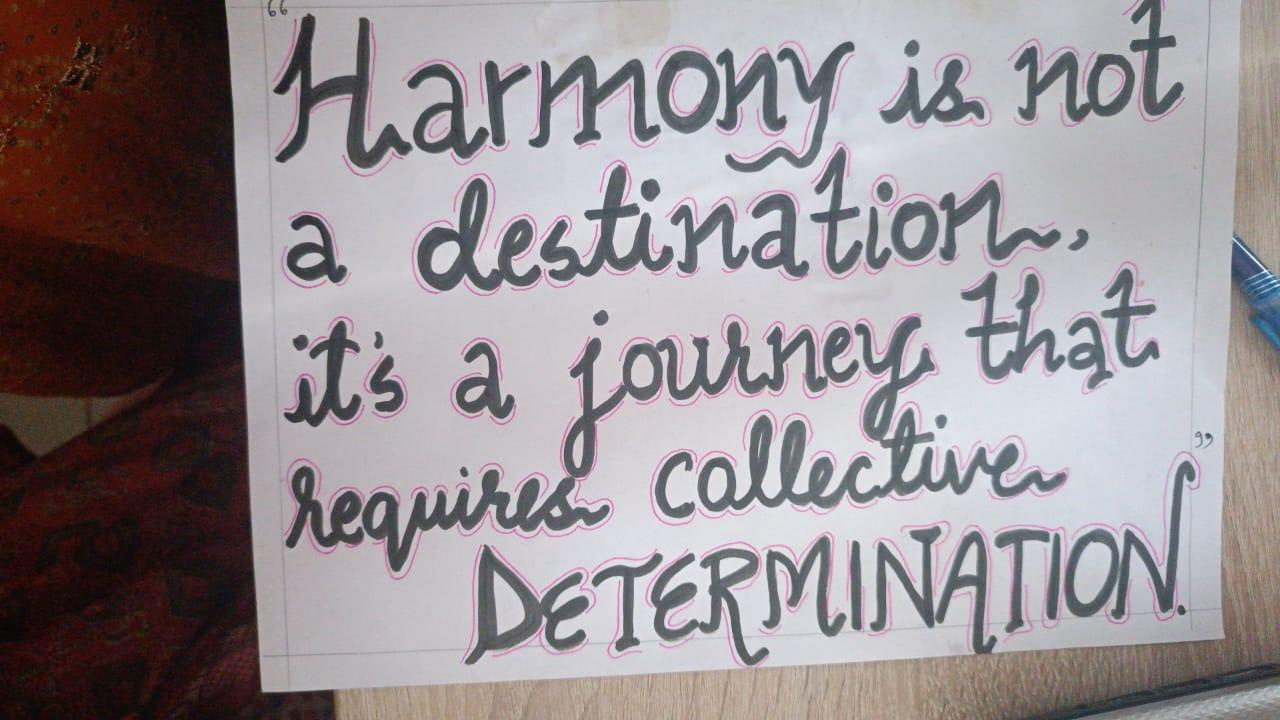 “Harmony is not
a destination,
it's a journey that
requires collective
DETERMINATION.”